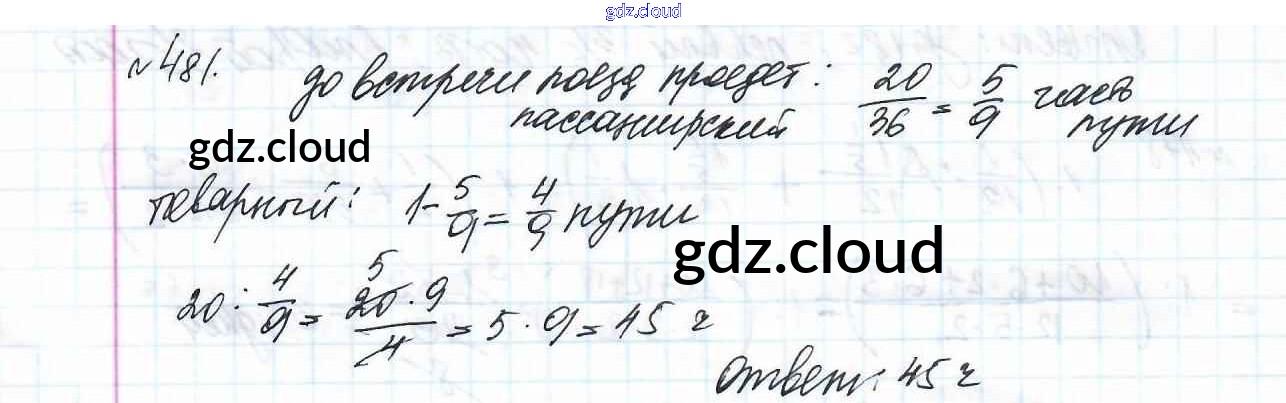 gdz.cloud
№481. до встречи поезд проедет:
пассажирский 20/36 = 5/9 часть пути
gdz.cloud
товарный: 1 - 5/9 = 4/9 пути
gdz.cloud
20 : 4/9 = 20·9/4 = 5·9 = 45 ч
5
Ответ: 45 ч